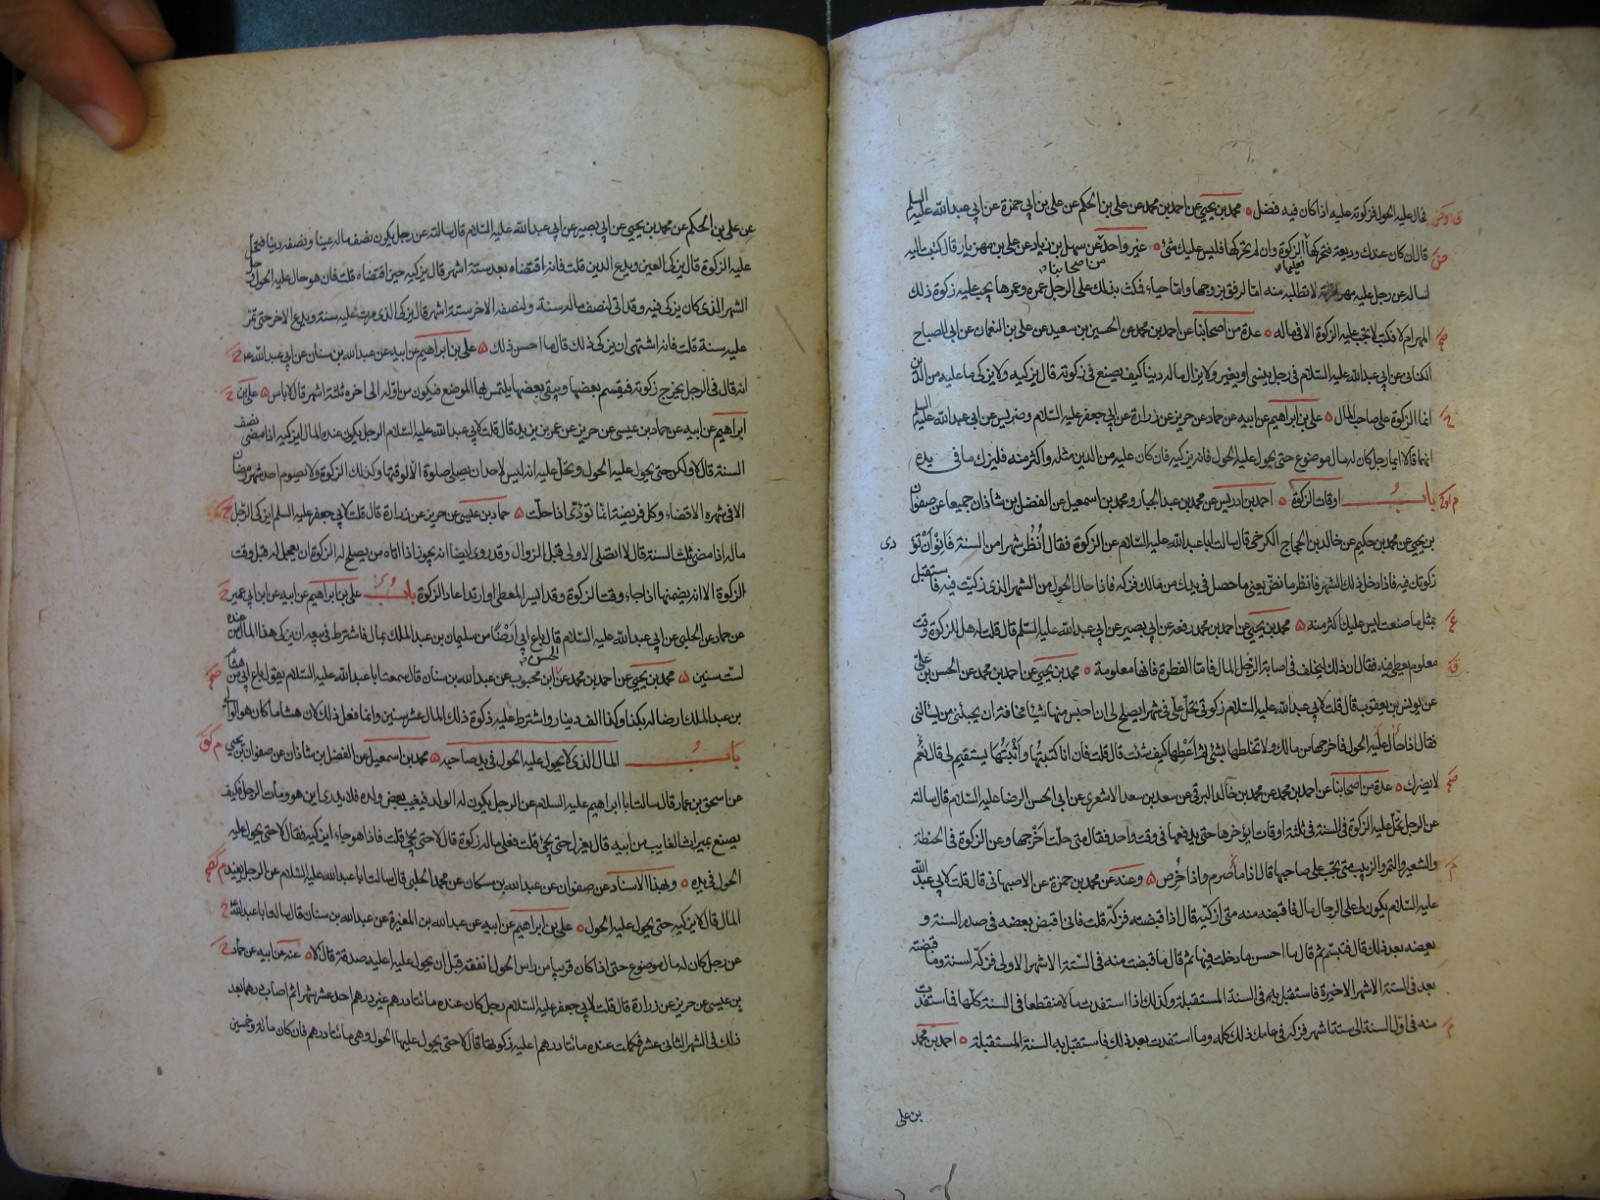 فحال عليه الحول فزكوته عليه اذا كان فيه فضل محمد بن يحيى عن احمد بن محمد عن علي بن الحكم عن علي بن ابي حمزة عن ابي عبد الله عليه السلم
قال ان كان عندك وديعة تحركها فعليك الزكوة وان لم تحركها فليس عليك شئ غير واحد من اصحابنا عن سهل بن زياد عن علي بن مهزيار قال كتبت اليه
اساله عن رجل عليه مهر امراته لا تطلبه منه اما لرفق بزوجها واما حياء فمكث بذلك على الرجل عمره وعمرها يجب عليه زكوة ذلك
المهر ام لا فكتب لا يجب عليه الزكوة الا في ماله عدة من اصحابنا عن احمد بن محمد عن الحسين بن سعيد عن علي بن النعمان عن ابي الصباح
الكناني عن ابي عبد الله عليه السلام في رجل ينسى او يعير ولا يزال ماله دينا كيف يصنع في زكوته قال يزكيه ولا يزكي ما عليه من الدين
انما الزكوة على صاحب المال علي بن ابراهيم عن ابيه عن حماد عن حريز عن زرارة عن ابي جعفر عليه السلام وضريس عن ابي عبد الله عليه السلم
انهما قالا ايما رجل كان له مال موضوع حتى يحول عليه الحول فانه يزكيه فان كان عليه من الدين مثله واكثر منه فليزك ما في يده
باب اوقات الزكوة احمد بن ادريس عن محمد بن عبد الجبار ومحمد بن اسمعيل عن الفضل بن شاذان جميعا عن صفوان
بن يحيى عن محمد بن حكيم عن خالد بن الحجاج الكرخي قال سالت ابا عبد الله عليه السلام عن الزكوة فقال انظر شهرا من السنة فانو ان تؤدى
زكوتك فيه فاذا دخل ذلك الشهر فانظر ما نض يعني ما حصل في يدك من مالك فزكه فاذا حال الحول من الشهر الذي زكيت فيه فاستقبل
بمثل ما صنعت ليس عليك اكثر منه محمد بن يحيى عن احمد بن محمد رفعه عن ابي بصير عن ابي عبد الله عليه السلم قال قلت له هل للزكوة وقت
معلوم يعطى فيه فقال ان ذلك ليختلف في اصابة الرجل المال فاما الفطرة فانها معلومة محمد بن يحيى عن احمد بن محمد عن الحسن بن علي
عن يونس بن يعقوب قال قلت لابي عبد الله عليه السلام زكوتي تحل علي في شهر ايصلح لي ان احبس منها شيئا مخافة ان يجيئني من يسالني
فقال اذا حال عليه الحول فاخرجها من مالك ولا تخلطها بشئ ثم اعطها كيف شئت قال قلت فان انا كتبتها واثبتها يستقيم لي قال نعم
لا يضرك عدة من اصحابنا عن احمد بن محمد عن محمد بن خالد البرقي عن سعد بن سعد الاشعري عن ابي الحسن الرضا عليه السلام قال سالته
عن الرجل تحل عليه الزكوة في السنة في ثلثة اوقات ايؤخرها حتى يدفعها في وقت واحد فقال متى حلت اخرجها وعن الزكوة في الحنطة
والشعير والتمر والزبيب متى تجب على صاحبها قال اذا ما صرم واذا خرص وعنه عن محمد بن حمزة عن الاصبهاني قال قلت لابي عبد الله
عليه السلام يكون لي على الرجال مال فاقبضه منه متى ازكيه قال اذا قبضته فزكه قلت فاني اقبض بعضه في صدر السنة و
بعضه بعد ذلك قال فتبسم ثم قال ما احسن ما دخلت فيها ثم قال ما قبضت منه في الستة الاشهر الاولى فزكه لسنته وما قبضته
بعد في الستة الاشهر الاخيرة فاستقبل به في السنة المستقبلة وكذلك اذا استفدت مالا منقطعا في السنة كلها فما استفدت
منه في اول السنة الى ستة اشهر فزكه في عامك ذلك كله وما استفدت بعد ذلك فاستقبل به السنة المستقبلة احمد بن محمد
بن علي
عن علي بن الحكم عن محمد بن يحيى عن ابي بصير عن ابي عبد الله عليه السلام قال سالته عن رجل يكون نصف ماله عينا ونصفه دينا فيحل
عليه الزكوة قال يزكي العين ويدع الدين قلت فانه اقتضاه بعد ستة اشهر قال يزكيه حين اقتضاه قلت فان هو حال عليه الحول وحل
الشهر الذي كان يزكي فيه وقد اتى لنصف ماله سنة ولنصفه الاخر ستة اشهر قال يزكي الذي مرت عليه سنة ويدع الاخر حتى تمر
عليه سنة قلت فانه اشتهى ان يزكي ذلك قال ما احسن ذلك علي بن ابراهيم عن ابيه عن عبد الله بن سنان عن ابي عبد الله ع
انه قال في الرجل يخرج زكوته فيقسم بعضها ويبقى بعضها يلتمس لها الموضع فيكون من اوله الى اخره ثلثة اشهر قال لا باس علي بن
ابراهيم عن ابيه عن حماد بن عيسى عن حريز عن عمر بن يزيد قال قلت لابي عبد الله عليه السلام الرجل يكون عنده المال ايزكيه اذا مضى نصف
السنة قال لا ولكن حتى يحول عليه الحول ويحل عليه انه ليس لاحد ان يصلي صلوة الا لوقتها وكذلك الزكوة ولا يصوم احد شهر رمضان
الا في شهره الا قضاء وكل فريضة انما تؤدى اذا حلت حماد بن عيسى عن حريز عن زرارة قال قلت لابي جعفر عليه السلم ايزكي الرجل
ماله اذا مضى ثلث السنة قال لا اتصلي الاولى قبل الزوال وقد روي ايضا انه يجوز اذا اتاه من يصلح له الزكوة ان يعجل له قبل وقت
الزكوة الا انه يضمنها اذا جاء وقت الزكوة وقد ايسر المعطى او ارتد اعاد الزكوة باب علي بن ابراهيم عن ابيه عن ابن ابي عمير
عن حماد عن الحلبي عن ابي عبد الله عليه السلام قال باع ابي ارضا من سليمان بن عبد الملك بمال فاشترط في بيعه ان يزكي هذا المال من عنده
لست سنين محمد بن يحيى عن احمد بن محمد عن الحسن بن محبوب عن عبد الله بن سنان قال سمعت ابا عبد الله عليه السلام يقول باع ابي من هشام
بن عبد الملك ارضا له بكذا وكذا الف دينار واشترط عليه زكوة ذلك المال عشر سنين وانما فعل ذلك لان هشاما كان هو الوالي
باب المال الذي لا يحول عليه الحول في يد صاحبه محمد بن اسمعيل عن الفضل بن شاذان عن صفوان بن يحيى
عن اسحق بن عمار قال سالت ابا ابراهيم عليه السلام عن الرجل يكون له الولد فيغيب بعض ولده فلا يدري اين هو ومات الرجل فكيف
يصنع بميراث الغايب من ابيه قال يعزل حتى يجئ قلت فعلى ماله زكوة قال لا حتى يجئ قلت فاذا هو جاء ايزكيه فقال لا حتى يحول عليه
الحول في يده وبهذا الاسناد عن صفوان عن عبد الله بن مسكان عن محمد الحلبي قال سالت ابا عبد الله عليه السلام عن الرجل يفيد
المال قال لا يزكيه حتى يحول عليه الحول علي بن ابراهيم عن ابيه عن عبد الله بن المغيرة عن عبد الله بن سنان قال سالت ابا عبد الله
عن رجل كان له مال موضوع حتى اذا كان قريبا من راس الحول انفقه قبل ان يحول عليه اعليه صدقة قال لا عنه عن ابيه عن حماد
بن عيسى عن حريز عن زرارة قال قلت لابي جعفر عليه السلام رجل كان عنده مائتا درهم غير درهم احد عشر شهرا ثم اصاب درهما بعد
ذلك في الشهر الثاني عشر فكملت عنده مائتا درهم اعليه زكوتها قال لا حتى يحول عليها الحول وهي مائتا درهم فان كان مائة وخمسين